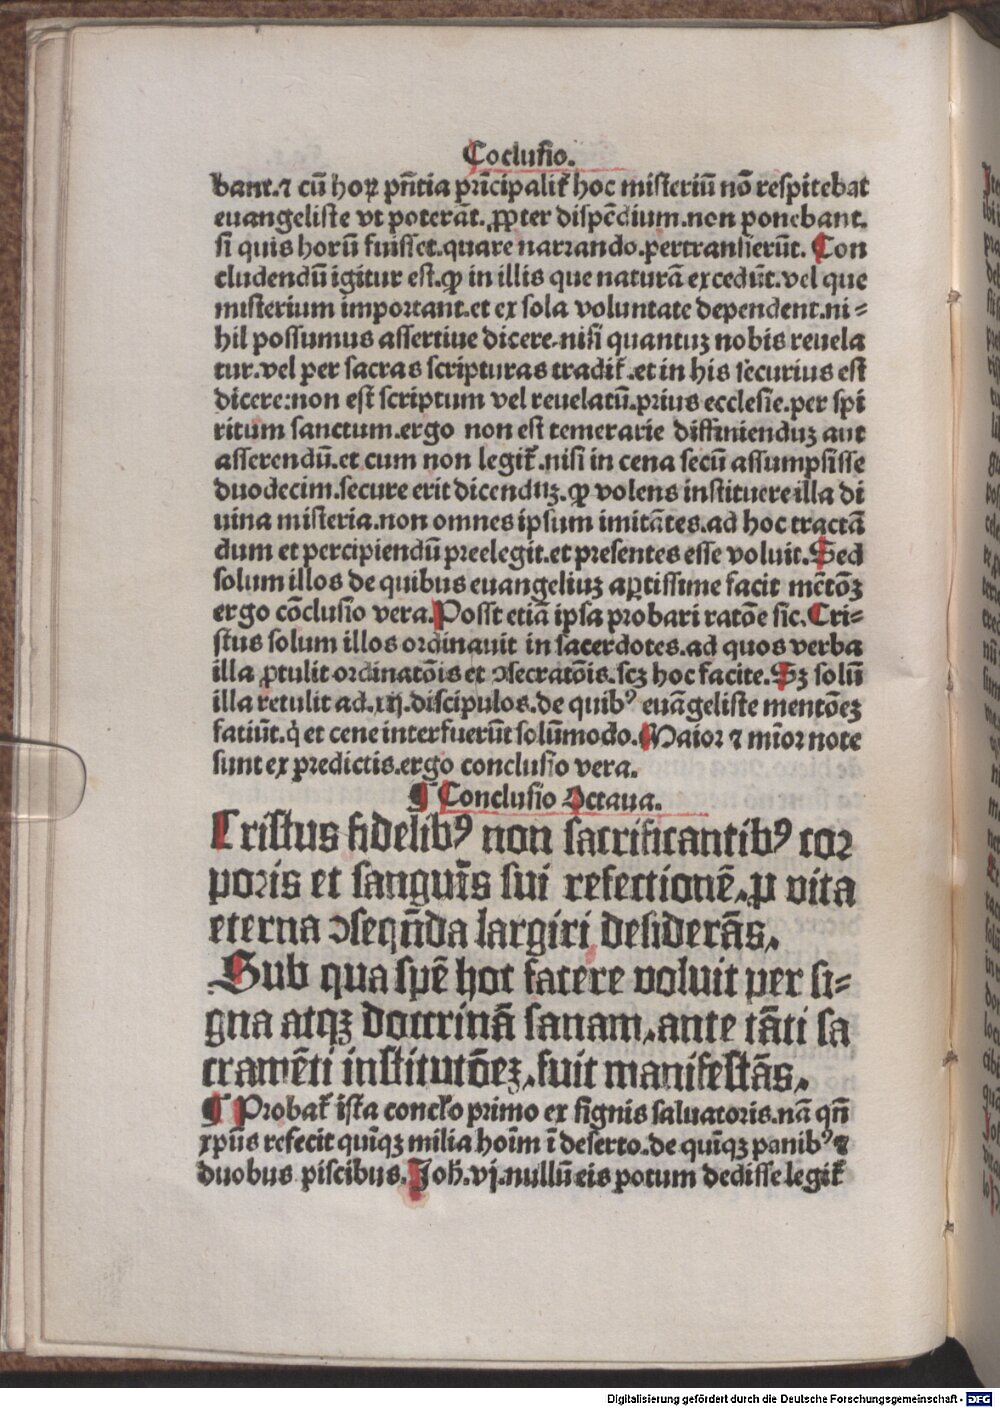 Coclusio.
bant.⁊ cū hoꝝ pñtia pͥncipalit̃ hoc misteriū nō respitebat
euangeliste vt poterāt. ꝓpter dispēdium.non ponebant.
si quis horū fuisset.quare narrando.pertransierūt. Con
cludendū igitur est.ꝙ in illis que naturā excedūt.vel que
misterium important.et ex sola voluntate dependent.ni⸗
hil possumus assertiue dicere.nisi quantuꝫ nobis reuela
tur.vel per sacras scripturas tradit̃.et in his securius est
dicere:non est scriptum vel reuelatū.prius ecclesie.per spi
ritum sanctum.ergo non est temerarie diffinienduꝫ aut
asserendū.et cum non legit̃.nisi in cena secū assumpsisse
duodecim.secure erit dicenduꝫ.ꝙ volens instituere illa di
uina misteria.non omnes ipsum imitātes.ad hoc tractā
dum et percipiendū preelegit.et presentes esse voluit.Sed
solum illos de quibus euangeliuꝫ aꝑtissime facit mētōꝫ
ergo cōclusio vera.Posst etiā ipsa probari ratōe sic.Cri⸗
stus solum illos ordinauit in sacerdotes.ad quos verba
illa ꝓtulit ordinatōis et ꝯsecratōis.scꝫ hoc facite.Sꝫ solū
illa retulit ad.xij.discipulos.de quibꝰ euāgeliste mentōeꝫ
fatiūt.q̇ et cene interfuerūt solūmodo.Maior ⁊ mīor note
sunt ex predictis.ergo conclusio vera.
¶ Conclusio Octaua.
Cristus fidelibꝰ non sacrificantibꝰ cor
poris et sanguīs sui refectionē, ꝑ vita
eterna ꝯseqñda largiri desiderās,
Sub qua spē hoc facere voluit per si⸗
gna atqꝫ doctrinā sanam,ante tāti sa
cramēti institutōeꝫ,fuit manifestās,
¶ Probat̃ ista conclõ primo ex signis saluatoris.nā qñ
xp̄us refecit quīqꝫ milia hoīm ī deserto.de quīqꝫ panibꝰ ⁊
duobus piscibus. Joh̄.vj.nullū eis potum dedisse legit̃
Digitalisierung gefördert durch die Deutsche Forschungsgemeinschaft - DFG